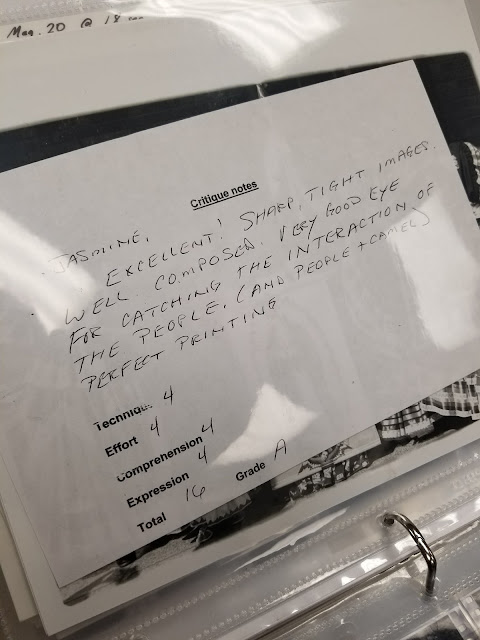 Critique notes
JASMINE,
EXCELLENT! SHARP, TIGHT IMAGES.
WELL COMPOSED. VERY GOOD EYE
FOR CATCHING THE INTERACTION OF
THE PEOPLE. (AND PEOPLE + CAMEL)
PERFECT PRINTING
Technique 4
Effort 4
Comprehension 4
Expression 4
Total 16 Grade A